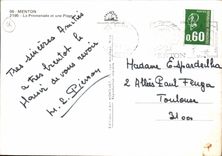 06 - MENTON
2190 - La Promenade et une Plage
Très sincères Amitiés
à très bientôt le
Plaisir de vous revoir
M. R. Pierson
0.60
Madame Espardeilha
2 Allées Paul Feuga
Toulouse
31000